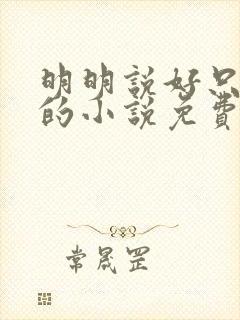 明明說好只
的小說免費
常晟罡